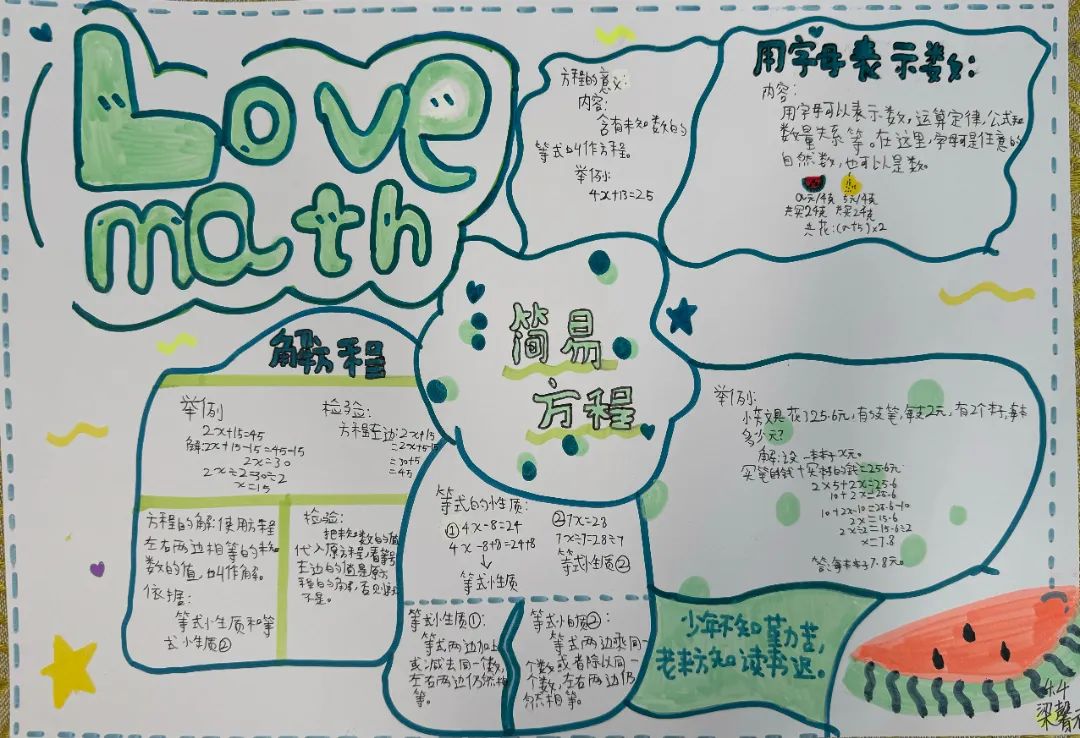 Love
math
方程的意义:
内容:
含有未知数的
等式叫作方程。
举例:
4x+13=25
用字母表示数:
内容:
用字母可以表示数,运算定律,公式和
数量关系等。在这里,字母可是任意的
自然数,也可以是数。
a元/千克 5元/千克
共买2千克 共买2千克
共花:(a+5)×2
简易
方程
解方程
举例
2x+15=45
解:2x+15-15=45-15
2x=30
2x÷2=30÷2
x=15
检验:
方程左边:2x+15
=2x+5-15
=30+5
=45
方程的解:使用方程
左右两边相等的未知
数的值,叫作解。
依据:
等式小生质和等
式小生质②
检验:
把未知数的值
代入原方程,看等号
左边的值是
不是。
等式的性质:
①4x-8=24
4x-8+8=24+8
↓
等式性质
②7x=28
7x÷7=28÷7
等式性质②
等式小生质①:
等式两边加上
或减去同一个数,
左右两边仍然相
等。
等式小白质②:
等式两边乘同一
个数或者除以同一
个数,左右两边仍
然相等。
举例:
小芳文具花了25.6元,有5支笔,每支2元,有2个本子,每本
多少元?
解:设一本本子x元。
买笔的钱+买本的钱=25.6元
2×5+2x=25.6
10+2x=25.6
10+2x-10=25.6-10
2x=15.6
2x÷2=15.6÷2
x=7.8
答:每本本子7.8元。
少年不知勤力苦,
老来方知读书迟。
4.4
梁馨